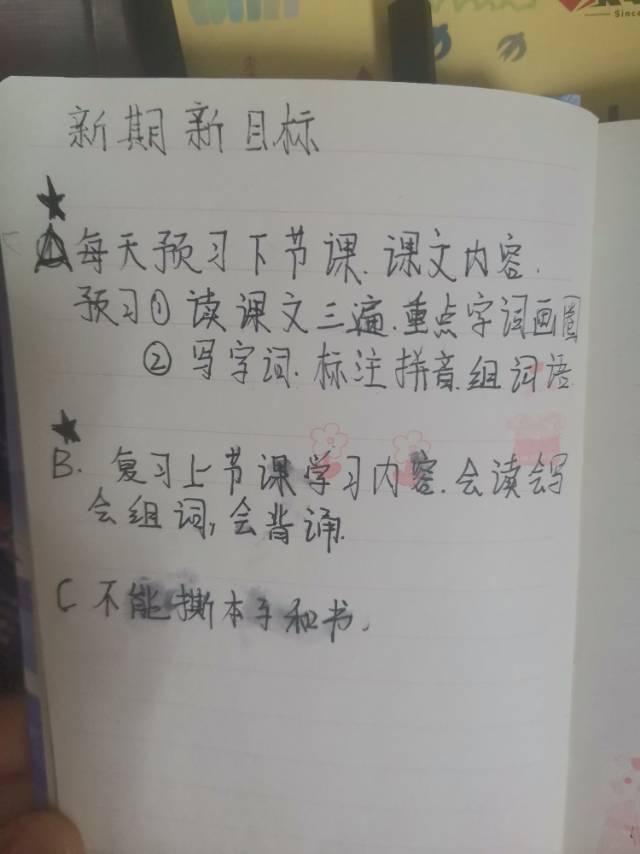 Since
新期新目标
★
A 每天预习下节课.课文内容.
预习① 读课文三遍.重点字词画圈
② 写字词.标注拼音.组词语.
★
B. 复习上节课学习内容.会读会写
会组词,会背诵.
C 不能撕本子和书.